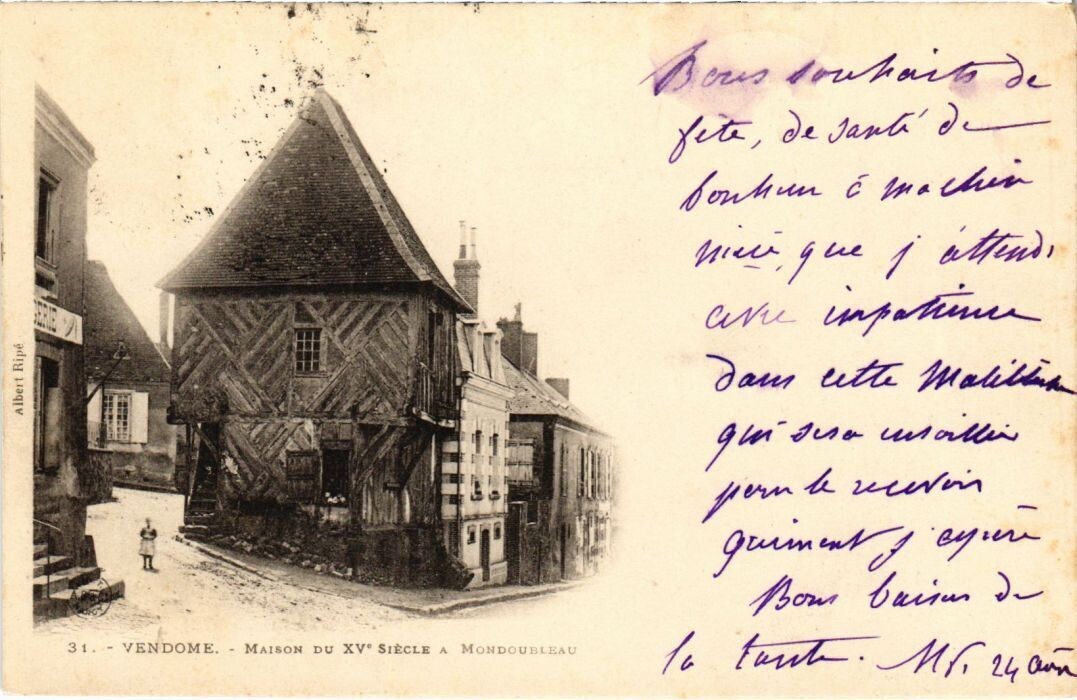 Bons souhaits de
fête, de santé de
bonheur à ma chère
nièce, que j'attends
avec impatience
dans cette
qui sera
pour le recevoir
gaiment, j'espère
Bons baisers de
la tante. M. 24
SERIE
Albert Ripé
31. - VENDOME. - MAISON DU XVe SIÈCLE A MONDOUBLEAU